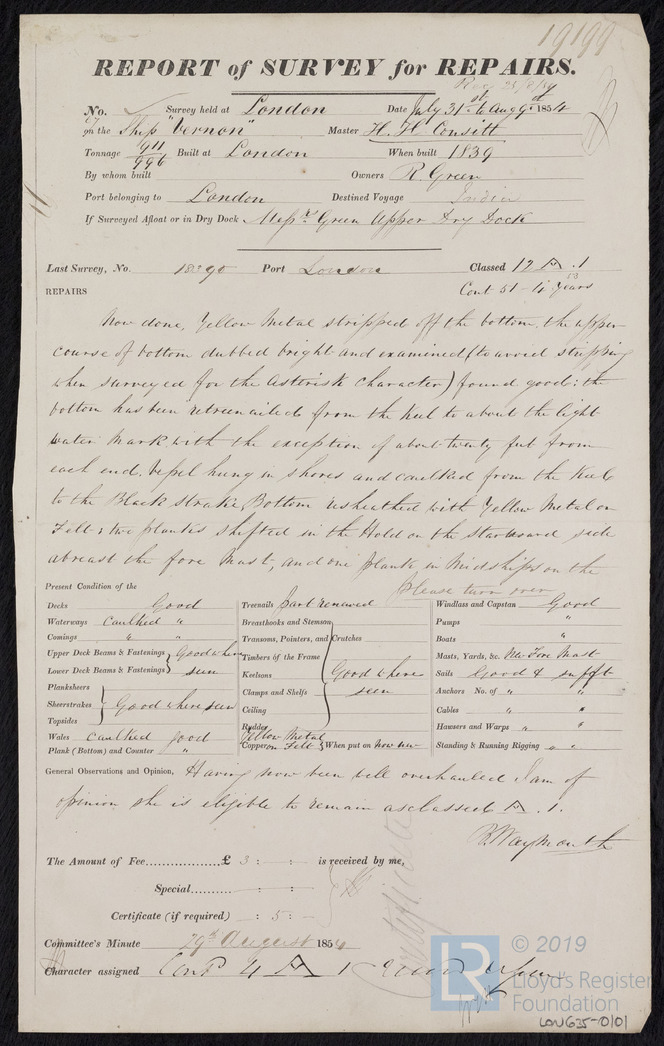 19199
REPORT of SURVEY for REPAIRS.
Rec 25/8/54
No. Survey held at London Date July 31st to Aug 9th 1854
on the Ship "Vernon" Master H. H. Consitt
Tonnage 911/996 Built at London When built 1839
By whom built Owners R. Green
Port belonging to London Destined Voyage India
If Surveyed Afloat or in Dry Dock Messrs Green Upper Dry Dock
Last Survey, No. Port London Classed 12 A .1
REPAIRS Cont 51 - 4 years
Now done, Yellow Metal stripped off the bottom. the upper
course of bottom dubbed bright and examined (to avoid stripping
when surveyed for the asterisk character) found good: the
bottom has been retreenailed from the Keel to about the light
water mark with the exception of about twenty feet from
each end. Vessel hung in shores and caulked from the Keel
to the Black strake, Bottom resheathed with Yellow Metal on
Felt: two planks shifted in the Hold on the starboard side
abreast the fore Mast, and one plank in Midships on the
please turn over
Present Condition of the
Decks Good
Waterways caulked "
Comings " "
Upper Deck Beams & Fastenings } Good where
Lower Deck Beams & Fastenings } seen
Planksheers
Sheerstrakes } Good where seen
Topsides
Wales caulked good
Plank (Bottom) and Counter "
Treenails part renewed
Breasthooks and Stemson
Transoms, Pointers, and Crutches
Timbers of the Frame
Keelsons } Good where
Clamps and Shelfs } seen
Ceiling
Rudder
Yellow Metal
Copper on Felt } When put on Now new
Windlass and Capstan Good
Pumps "
Boats "
Masts, Yards, &c. New Fore Mast
Sails Good & sufft
Anchors No. of " "
Cables " "
Hawsers and Warps " "
Standing & Running Rigging " "
General Observations and Opinion, Having now been well overhauled I am of
opinion she is eligible to remain as classed A .1.
B. Waymouth
The Amount of Fee................£ 3 : - : - is received by me,
Special........ : :
Certificate (if required) : 5 :
Certificate
Committee's Minute 29th August 1854
Character assigned Cont 4 A 1
LR © 2019
Lloyd's Register
Foundation
LON635-0101